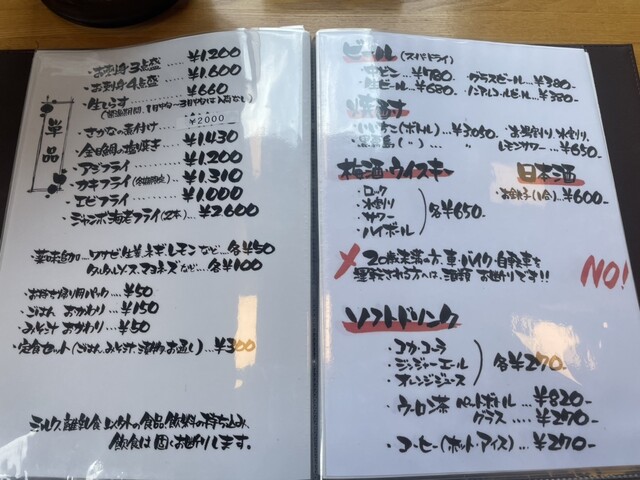 単品
お刺身3点盛 .... ¥1.200
お刺身4点盛 .... ¥1.600
生しらす ...... ¥660
(禁漁期間、1月中旬〜3月中旬は入荷なし)
さかなの煮付け ...... ¥2000
金目鯛の塩焼き ... ¥1.430
アジフライ ...... ¥1.200
カキフライ(冬期限定) ... ¥1.310
エビフライ ...... ¥1.000
ジャンボ海老フライ(2本) ... ¥2600
薬味追加...ワサビ、生姜、ネギ、レモンなど...各¥50
タルタルソース、マヨネーズなど...各¥100
お持ち帰り用パック .... ¥50
ごはん おかわり ... ¥150
みそ汁 おかわり ... ¥50
定食セット(ごはん、みそ汁、漬物、お通し)...¥300
ミルク、離乳食以外の食品、飲料の持ち込み、
飲食は固くお断りします。
ビール(スーパードライ)
ビン ... ¥780. グラスビール...¥380-
生ビール...¥680. ノンアルコールビール...¥380-
焼酎
いいちこ(ボトル)...¥3080. お湯割り、水割り、
(〃) 〃 レモンサワー...¥650-
梅酒・ウイスキー
・ロック
・水割り
・サワー
・ハイボール
各¥650.
日本酒
お銚子(1合)...¥600-
20歳未満の方、車・バイク・自転車を
運転される方へは、酒類 お断りです!!
NO!
ソフトドリンク
・コカ・コーラ
・ジンジャーエール
・オレンジジュース
各¥270.
・ウーロン茶 ペットボトル ... ¥820-
グラス .... ¥270-
・コーヒー(ホット・アイス)...¥270-